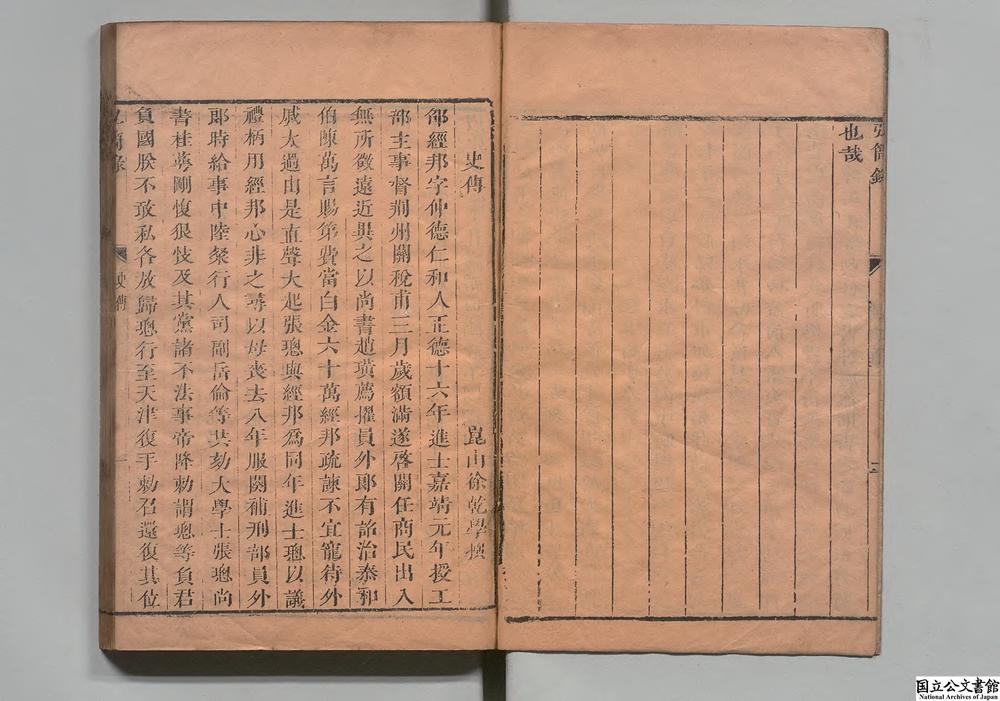 弘簡錄
也哉
史傳
崑山徐乾學撰
邵經邦字仲德仁和人正德十六年進士嘉靖元年授工
部主事督荆州關稅甫三月歲額滿遂啓關任商民出入
無所徵遠近異之以尚書趙璜薦擢員外郎有詔治泰和
伯陳萬言賜第費當白金六十萬經邦疏諫不宜寵待外
戚太過由是直聲大起張璁與經邦爲同年進士璁以議
禮柄用經邦心非之尋以母喪去八年服闋補刑部員外
郎時給事中陸粲行人司副岳倫等共劾大學士張璁尚
書桂萼剛愎狠忮及其黨諸不法事帝降勅謂璁等負君
負國朕不敢私各放歸璁行至天津復手勅召還復其位
弘簡錄
史傳
一
国立公文書館
National Archives of Japan